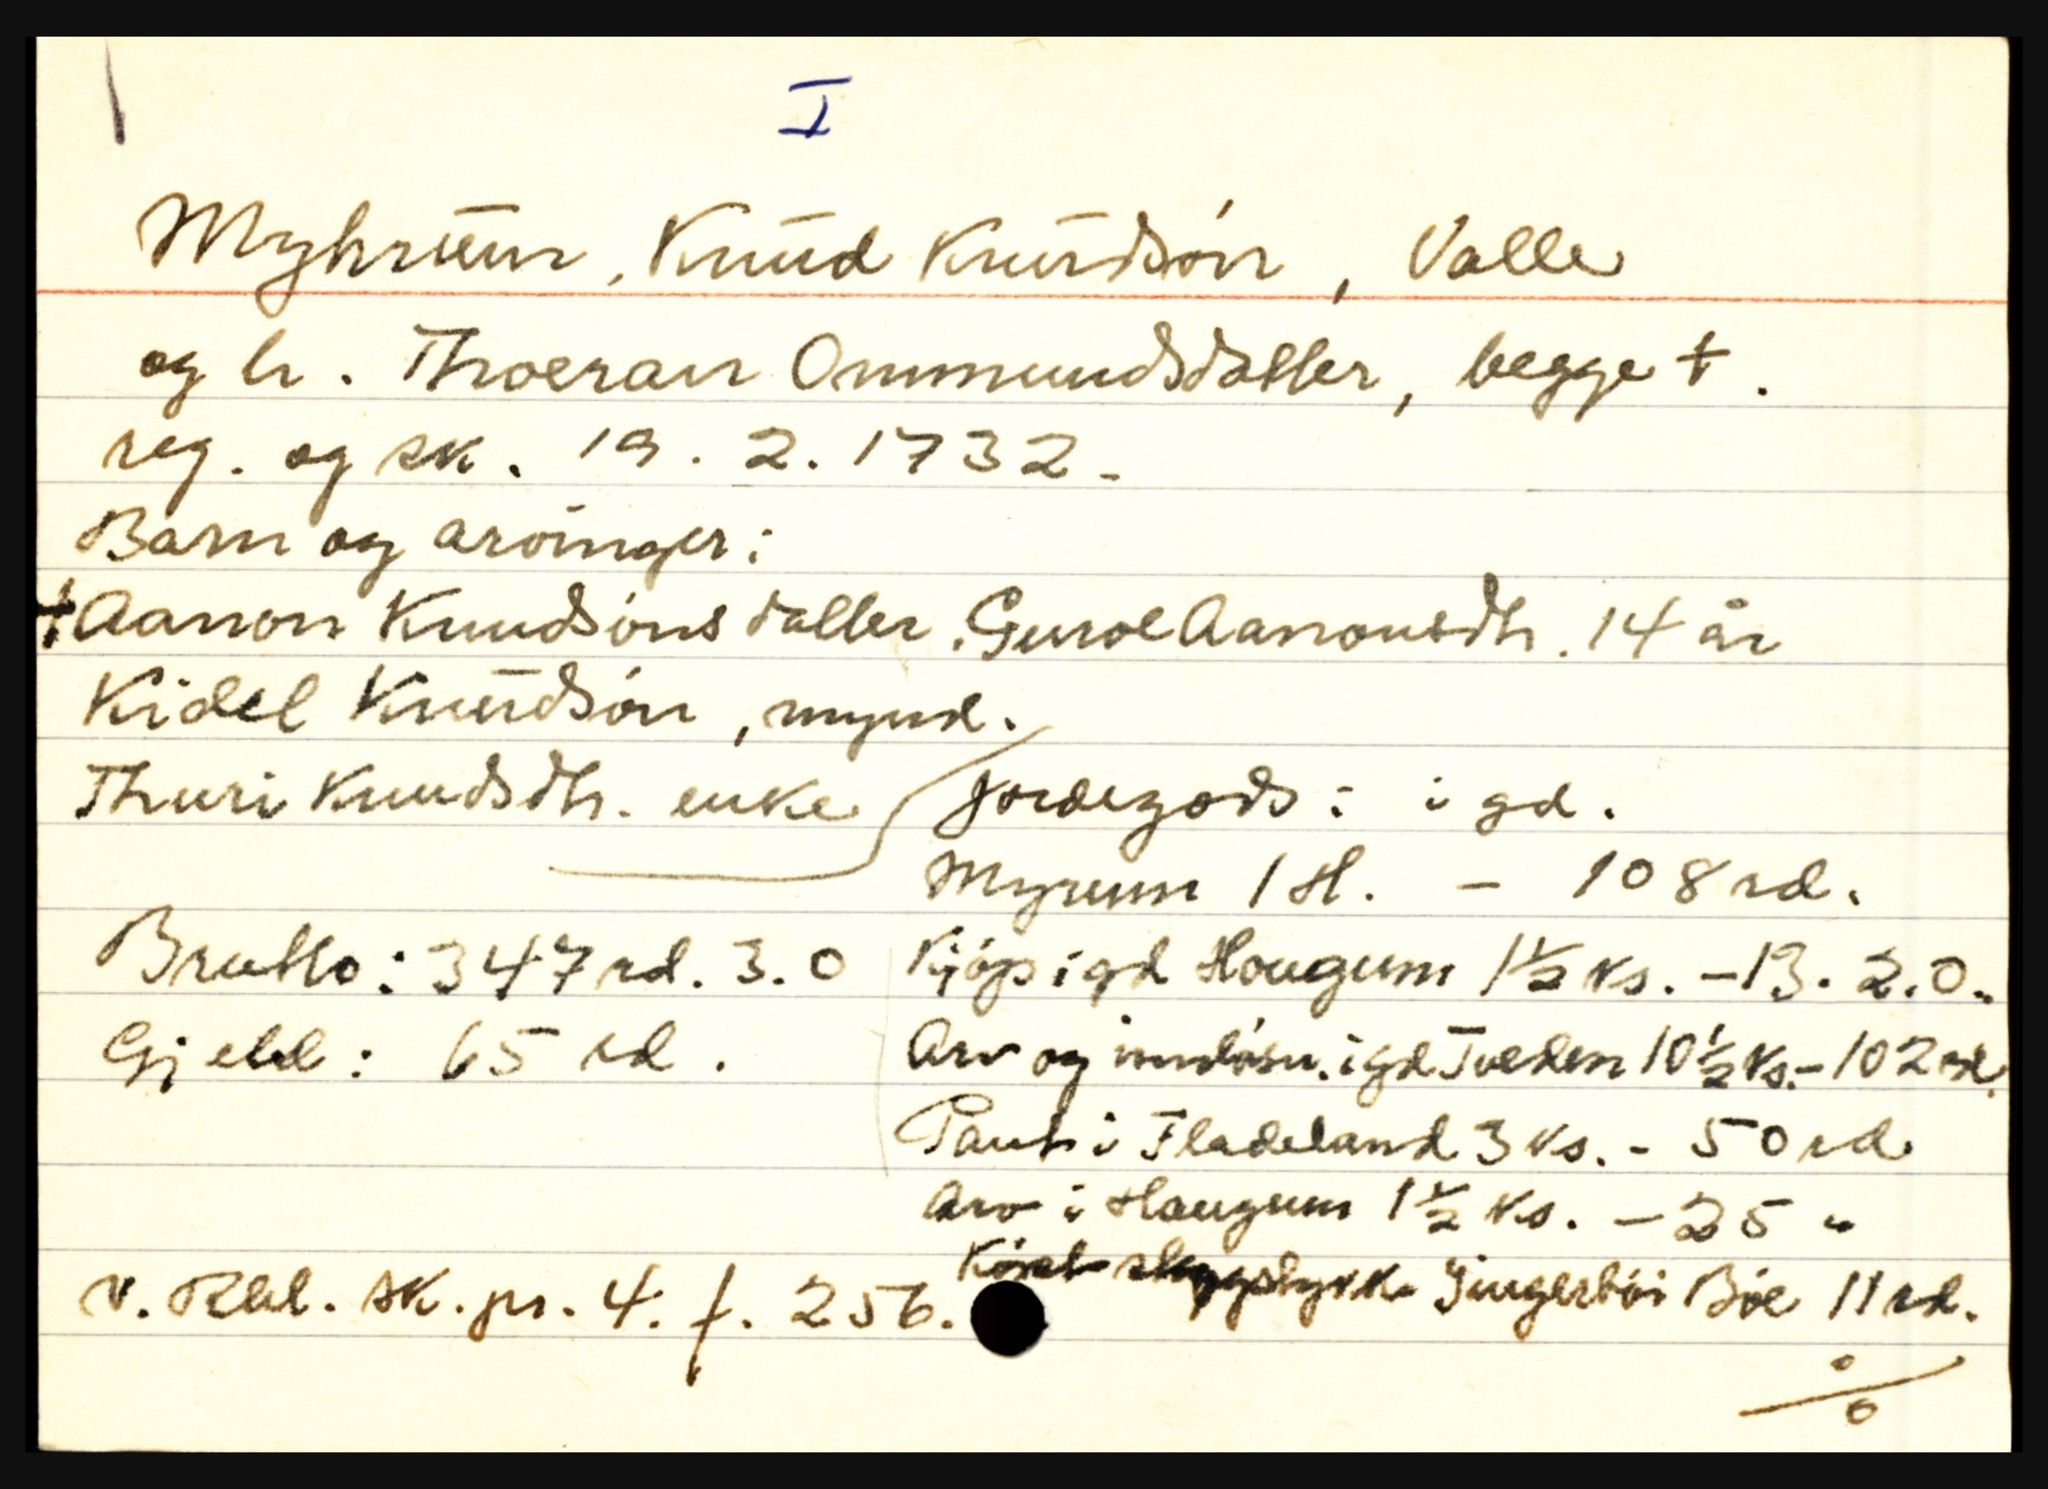 I
Myhrum, Knud Knudsön, Valle
og h. Thoeran Ommundsdatter, begge †.
reg. og sk. 19. 2. 1732.
Barn og arvinger:
† Aanon Knudsöns datter Guroe Aanonsdtr. 14 år
Kidel Knudsön, mynd.
Thuri Knudsdtr. enke
Jordegods: i gd.
Myrum 1 H. – 108 rd.
Kjöps i gd Hougum 1½ ks. – 13. 2. 0.
Arv og innlösn. i gd Tveden 10½ ks. – 102 rd.
Pant i Fladeland 3 ks. – 50 rd.
Arv i Haugum 1½ ks. – 25 "
Brutto: 347 rd. 3. 0
Gjeld: 65 rd.
i Böe 11 rd.
v. Rbl. sk. pr. 4. f. 256.
%